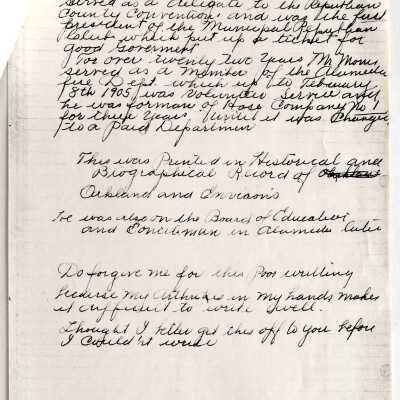 served as a delegate to the Republican
County Conventions and was the first
President of the Municipal Republican
Club which put up a ticket for
good Goverment
For over twenty Two years Mr Morris
served as a Member of the Alameda
fire Dept which up to February
18th 1905 was Volunteer Service and
he was forman of Hose Company No 1
for three years, Until it was Changed
to a Paid Department
This was Printed in Historical and
Biographical Record of
Oakland and Environs
He was also on the Board of Education
and Councilman in Alameda
Do forgive me for this Poor writing
because my Arthritis in my hands makes
it difficult to write well.
Thought I better get this off to you before
I couldn't write